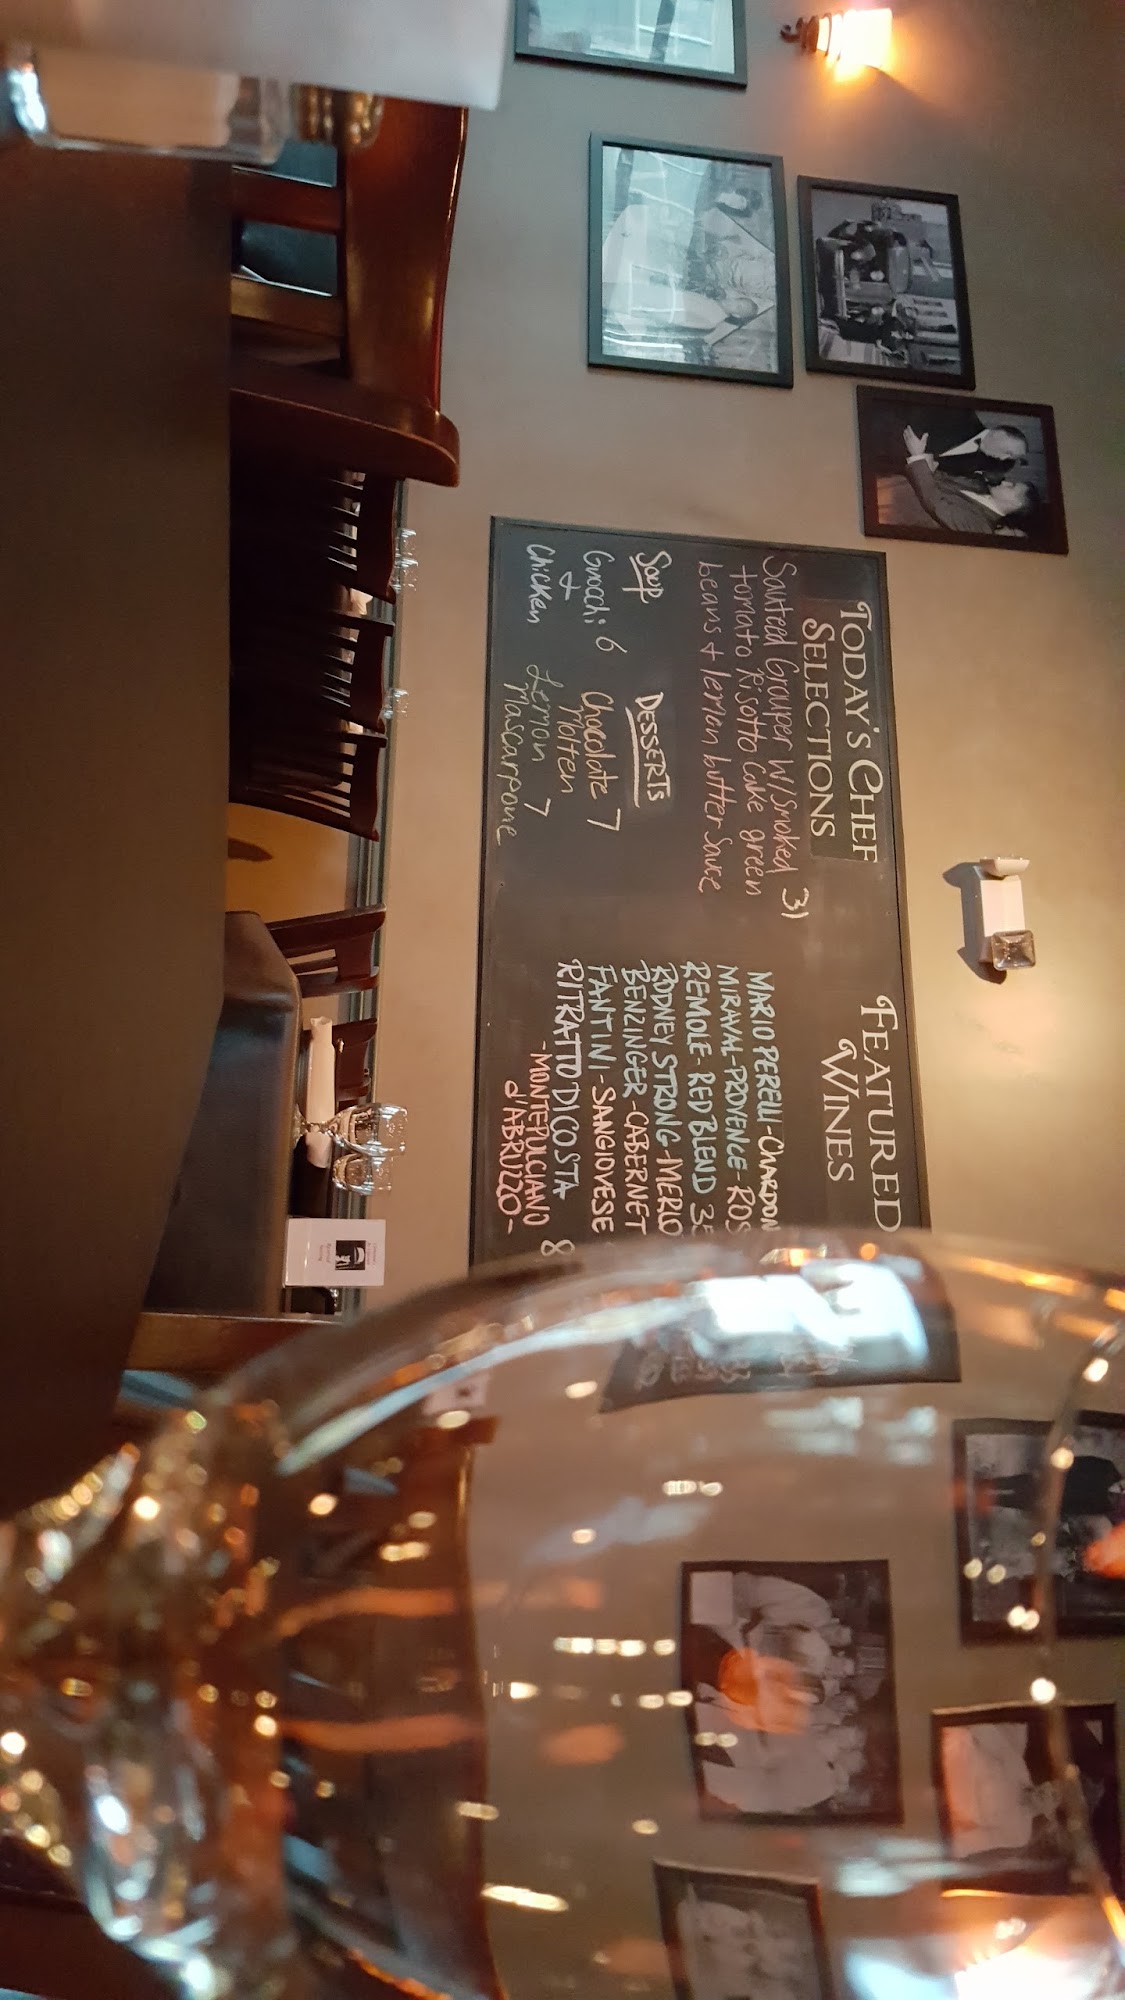 TODAY'S CHEF
SELECTIONS
Sauteed Grouper W/ Smoked 31
tomato Risotto Cake green
beans + lemon butter Sauce
Soup
Gnocchi 6
+
Chicken
DESSERTS
Chocolate 7
Molten
Lemon 7
Mascarpone
FEATURED
WINES
MARIO PERELLI-CHARDON
MIRAVAL-PROVENCE-ROS
REMOLE-RED BLEND
RODNEY STRONG-MERLO
BENZINGER-CABERNET
FANTINI-SANGIOVESE
RITRATTO DI COSTA 8
-MONTEPULCIANO
d'ABRUZZO-